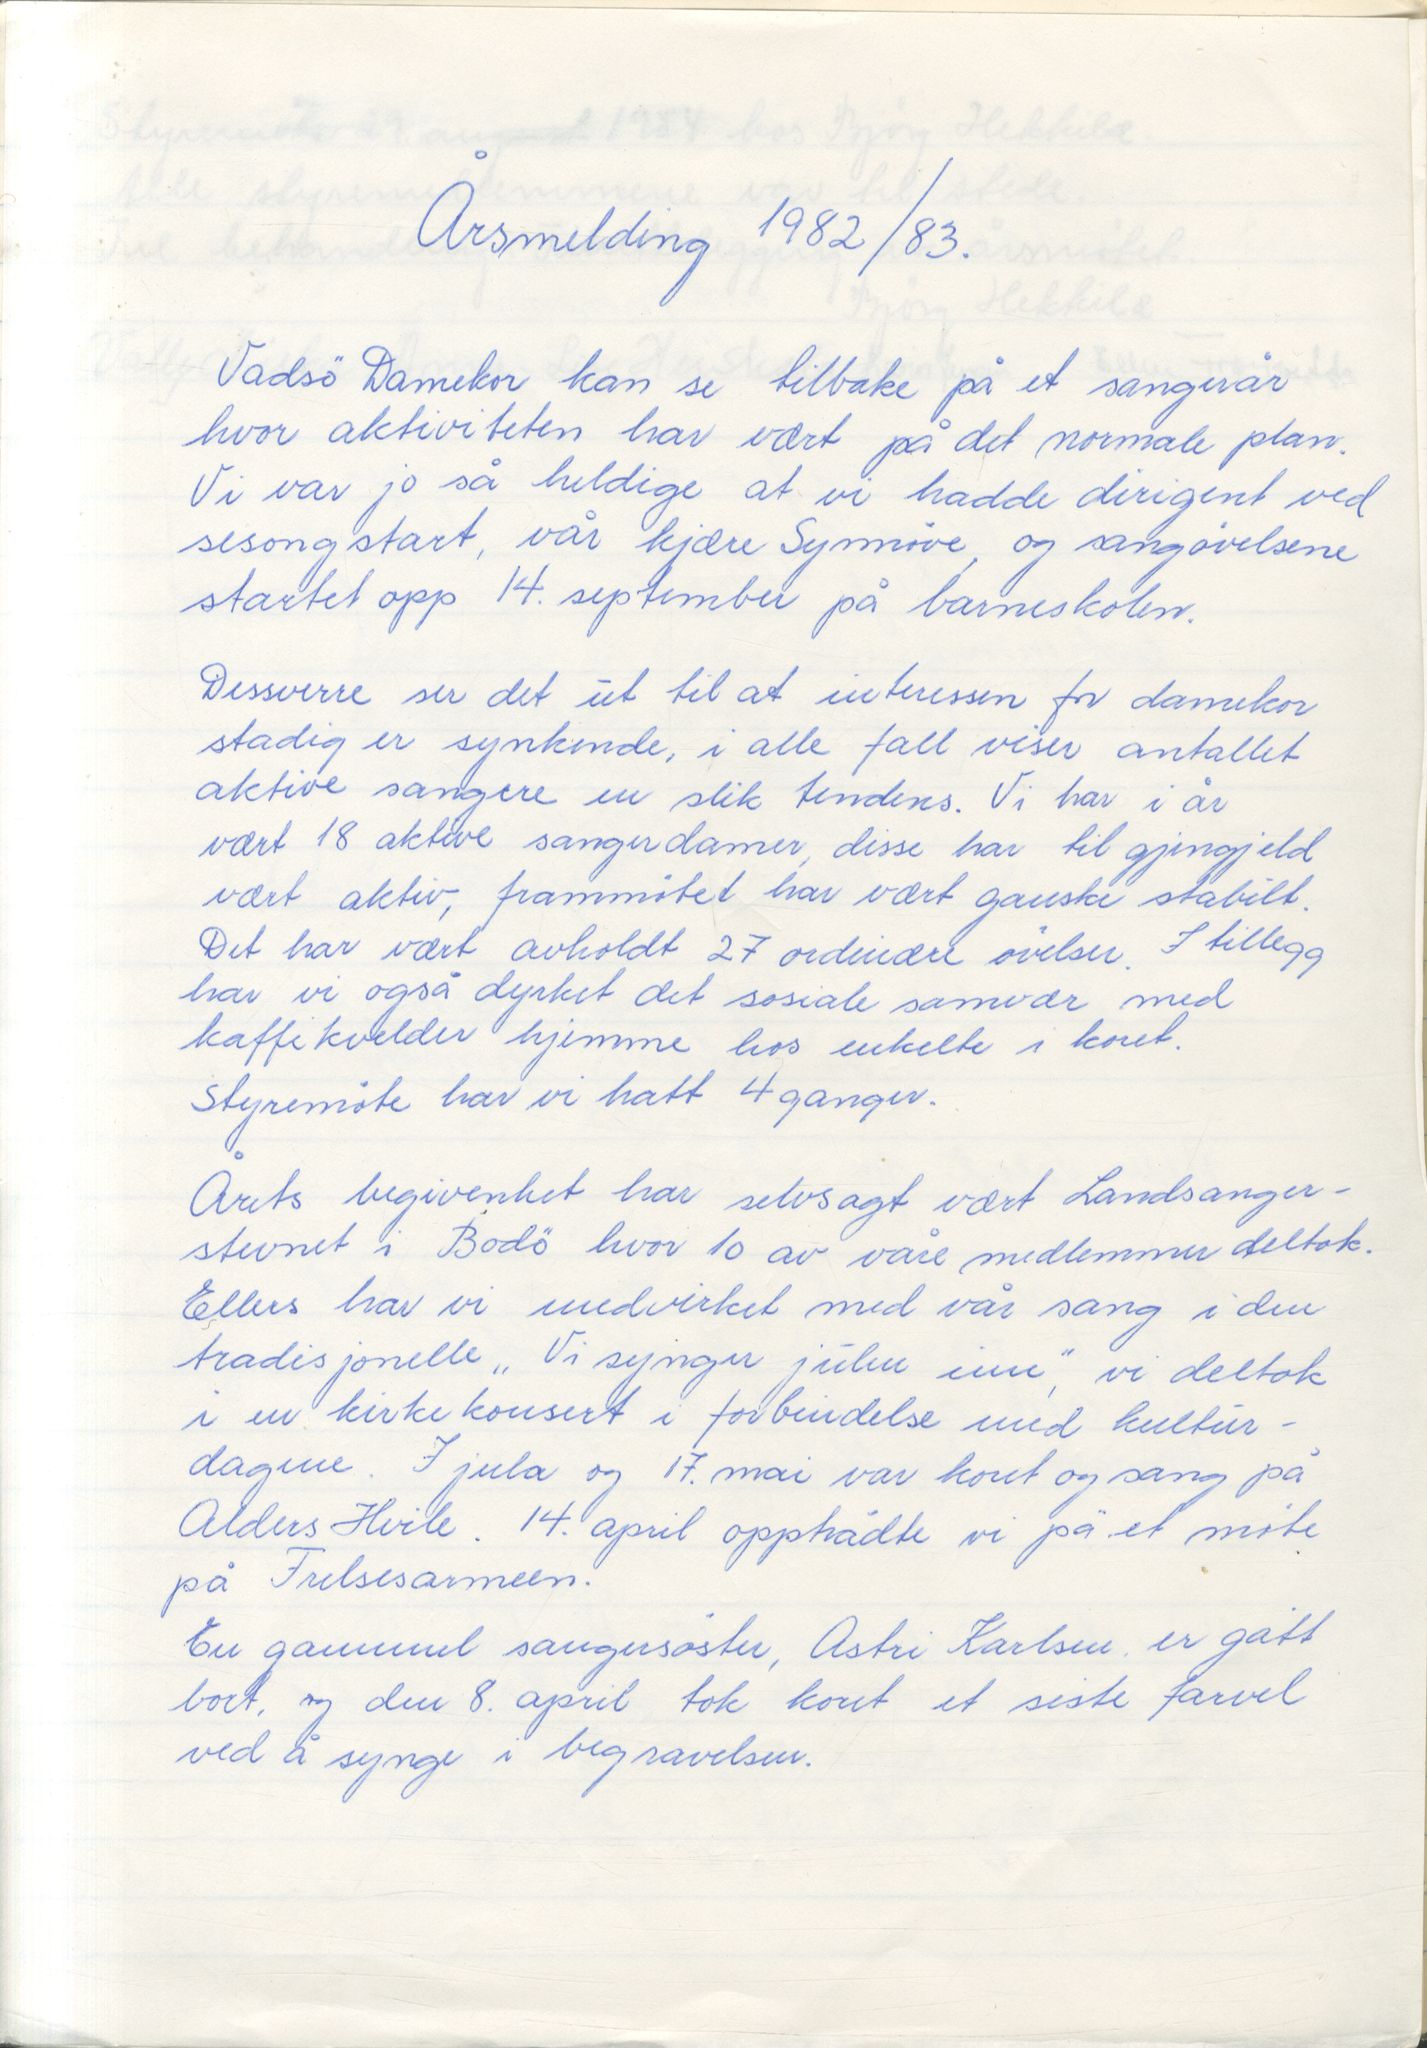 Årsmelding 1982/83.
Vadsö Damekor kan se tilbake på et sangerår
hvor aktiviteten har vært på det normale plan.
Vi var jo så heldige at vi hadde dirigent ved
sesongstart, vår kjære Synnöve, og sangövelsene
startet opp 14. september på barneskolen.
Dessverre ser det ut til at interessen for damekor
stadig er synkende, i alle fall viser antallet
aktive sangere en slik tendens. Vi har i år
vært 18 aktive sangerdamer, disse har til gjengjeld
vært aktiv, frammötet har vært ganske stabilt.
Det har vært avholdt 27 ordinære övelser. I tillegg
har vi også dyrket det sosiale samvær med
kaffekvelder hjemme hos enkelte i koret.
Styremöte har vi hatt 4 ganger.
Årets begivenhet har selvsagt vært Landsanger-
stevnet i Bodö hvor 10 av våre medlemmer deltok.
Ellers har vi medvirket med vår sang i den
tradisjonelle „Vi synger julen inn", vi deltok
i en kirkekonsert i forbindelse med kultur-
dagene. I jula og 17. mai var koret og sang på
Alders Hvile. 14. april opptrådte vi på et möte
på Frelsesarmeen.
En gammel sangersöster, Astri Karlsen, er gått
bort, og den 8. april tok koret et siste farvel
ved å synge i begravelsen.